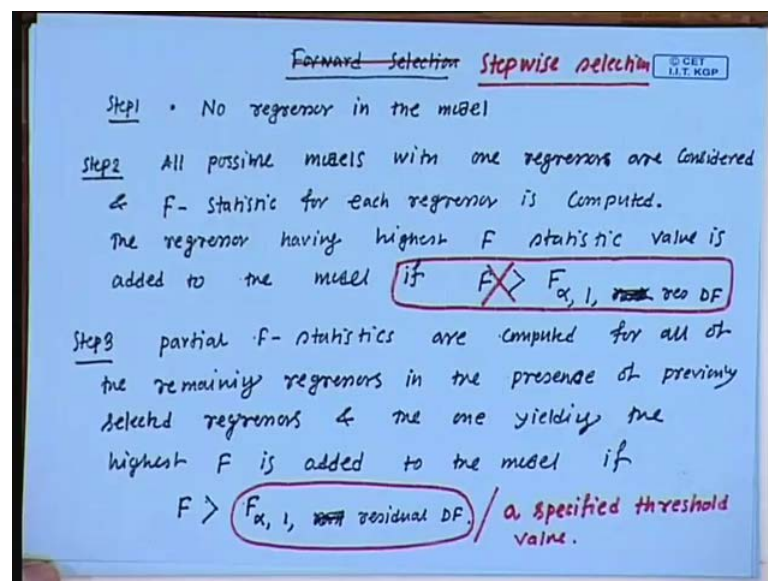 Forward Selection Stepwise selection © CET I.I.T. KGP
Step1 • No regressor in the model
Step2 All possible models with one regressors are Considered
& F- Statistic for each regressor is Computed.
The regressor having highest F statistic value is
added to the model if F > F α, 1, res DF
Step3 partial F- statistics are computed for all of
the remaining regressors in the presence of previously
selected regressors & the one yielding the
highest F is added to the model if
F > F α, 1, residual DF. / a specified threshold
value.